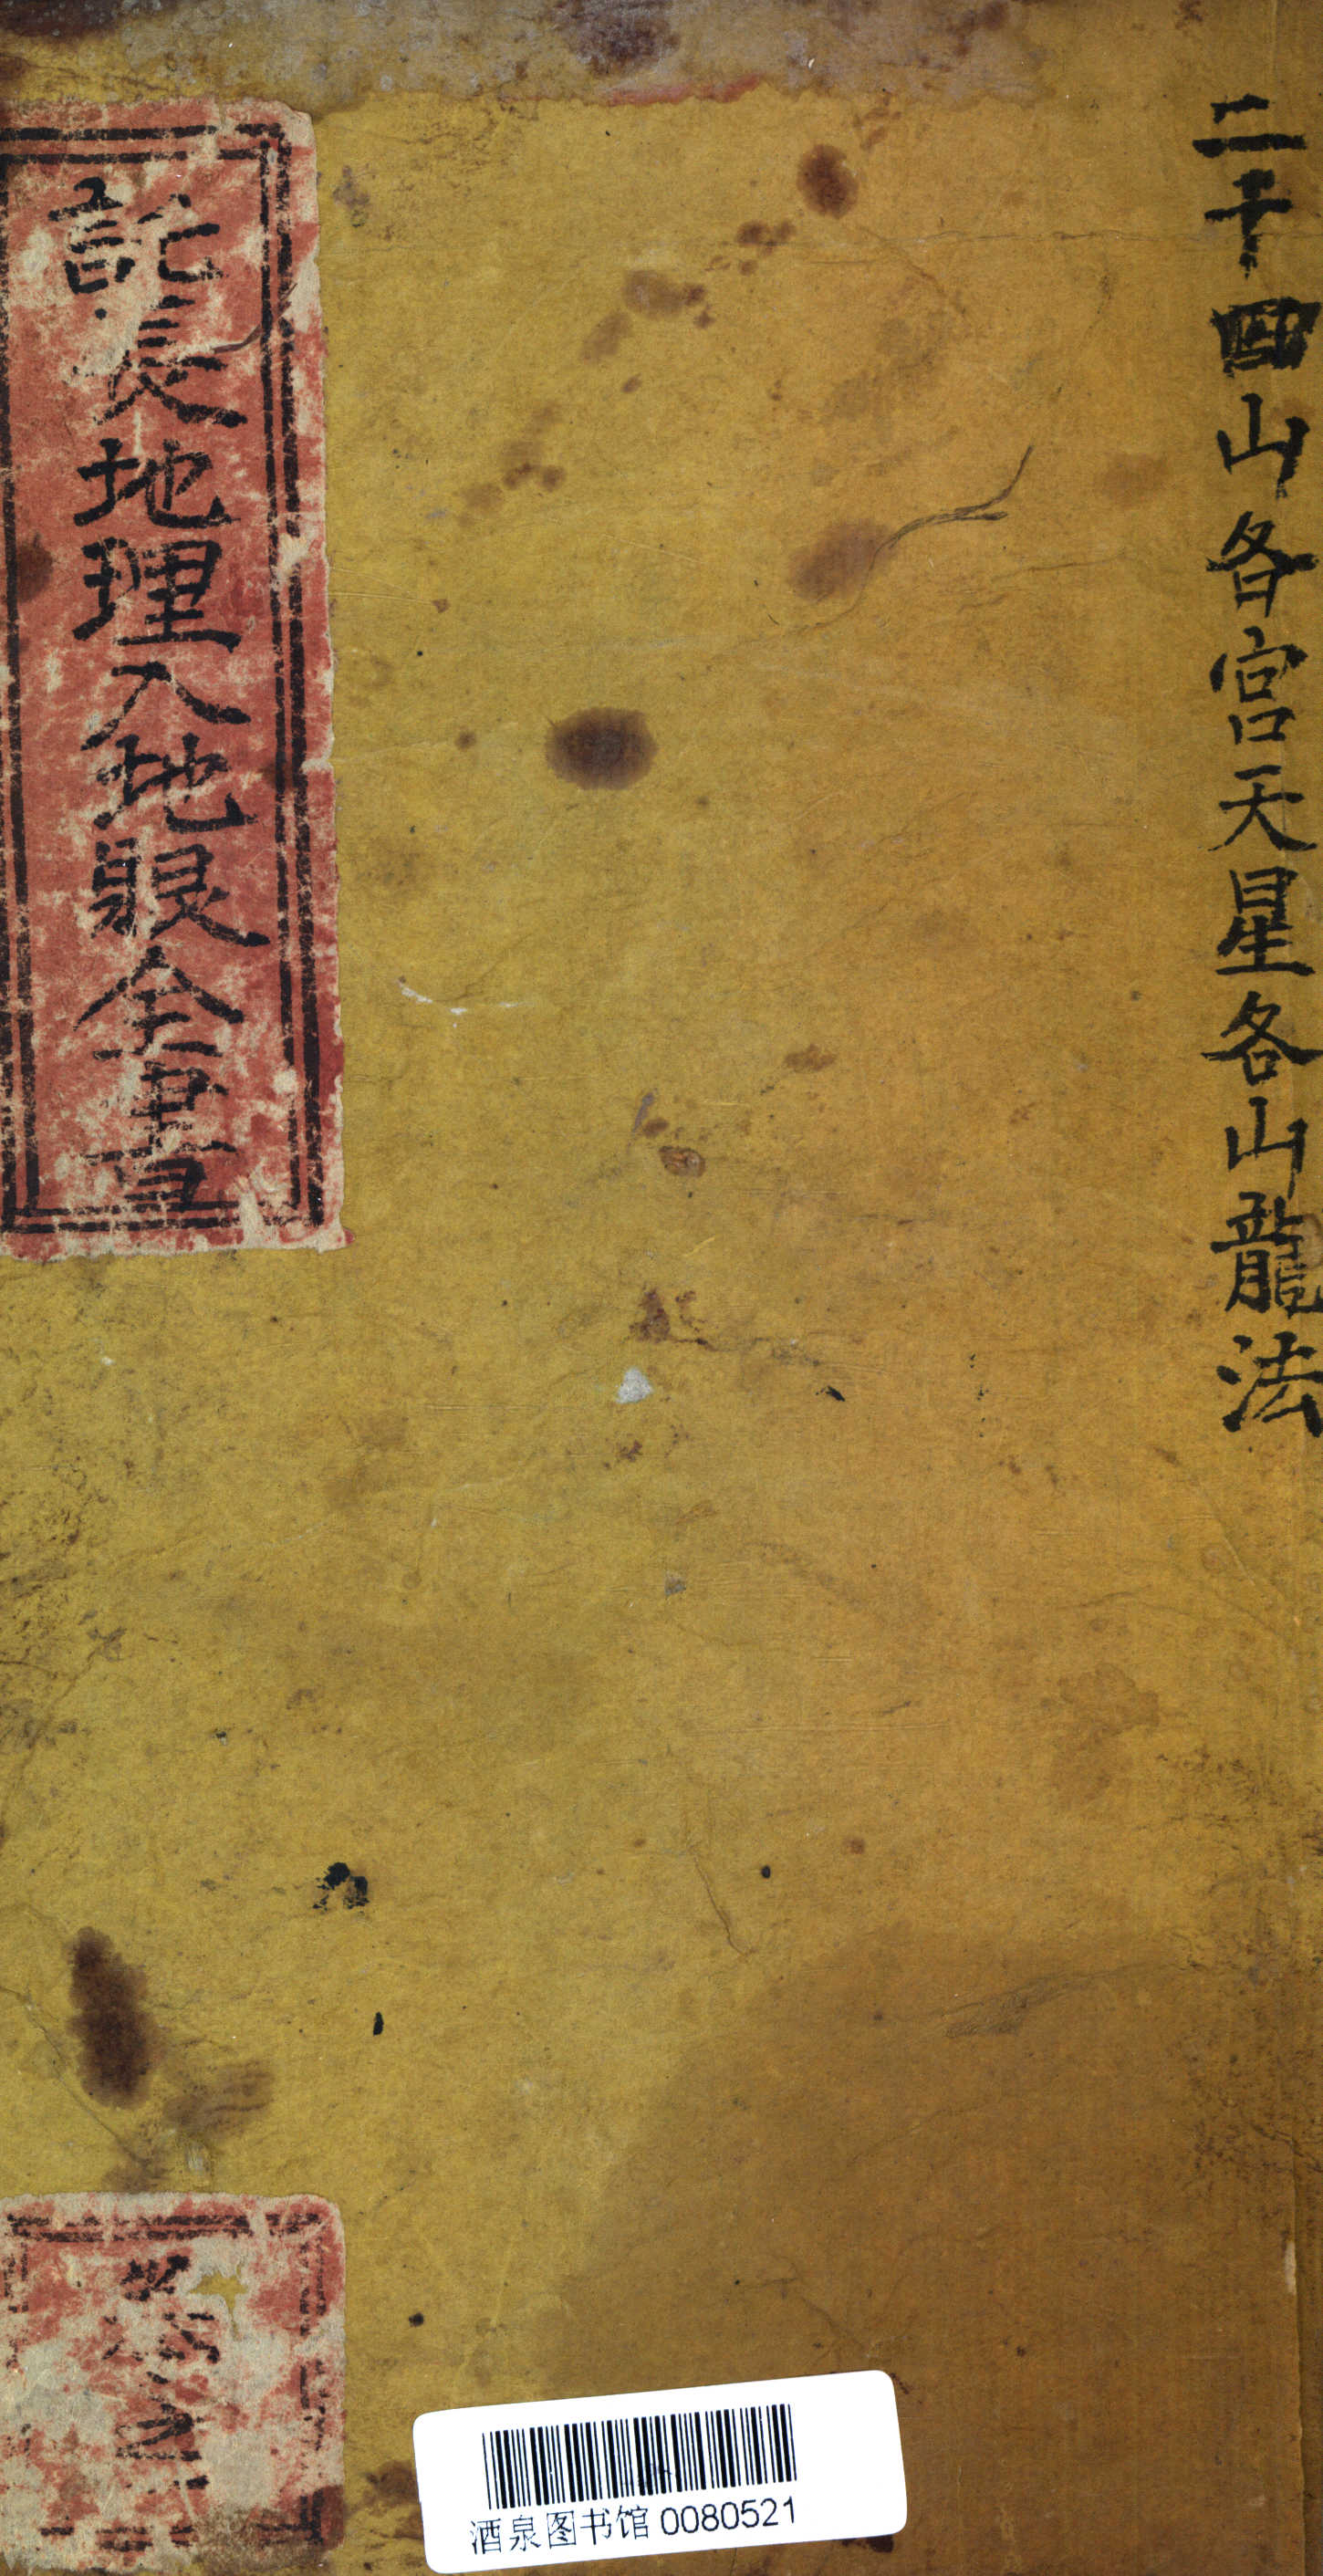 二十四山各宫天星各山龍法
託長地理入地眼全書
卷之
酒泉图书馆 0080521